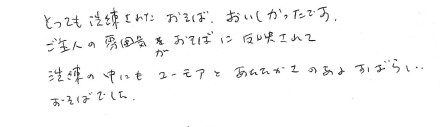 とっても洗練されたおそば。おいしかったです。
ご主人の雰囲気がおそばに反映されて
洗練の中にもユーモアとあたたかさのあるすばらしい..
おそばでした。